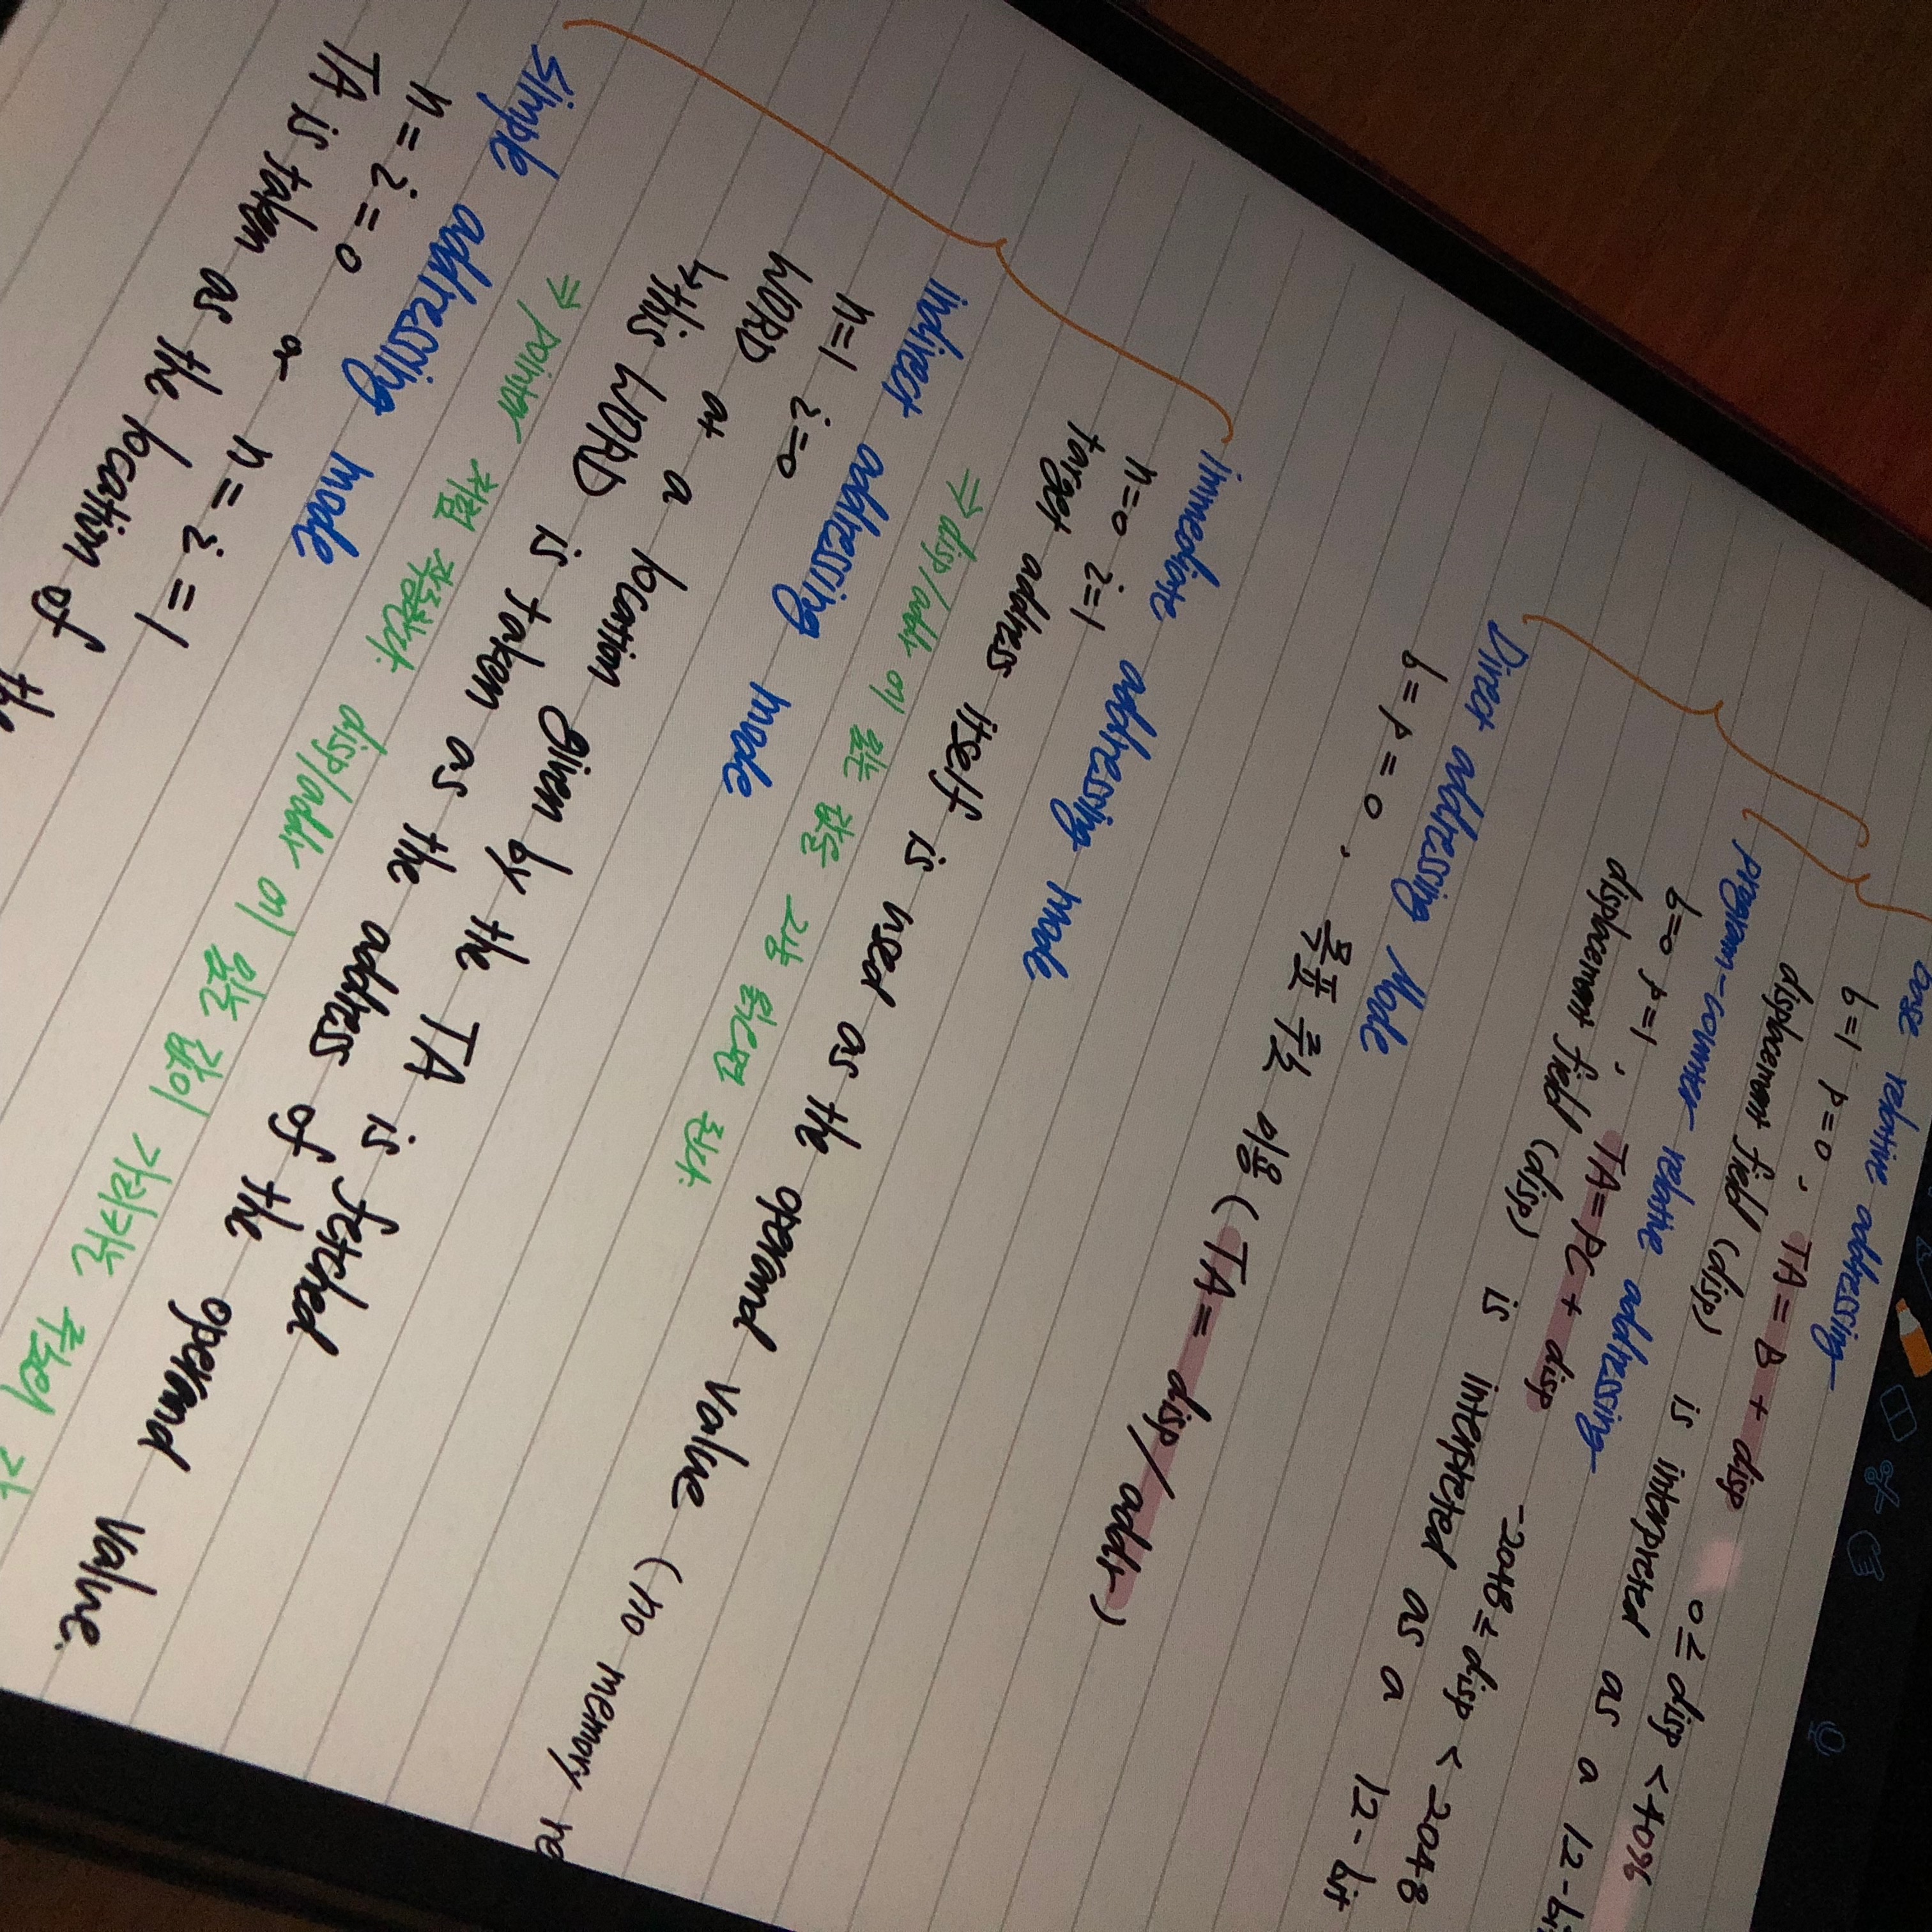 base relative addressing
b=1 p=0, TA= B + disp 0≤ disp <4096
displacement field (disp) is interpreted as a 12-bit
program-counter relative addressing
b=0 p=1, TA= PC + disp -2048≤ disp < 2048
displacement field (disp) is interpreted as a 12-bit
Direct addressing Mode
b=p=0, 목표 주소 이용 (TA= disp/addr)
immediate addressing mode
n=0 i=1
target address itself is used as the operand value (no memory re
⇒ disp/addr 에 있는 값을 그냥 읽으면 된다.
indirect addressing mode
n=1 i=0
WORD at a location given by the TA is fetched
↳this WORD is taken as the address of the operand value.
⇒ pointer 처럼 작동한다. disp/addr 에 있는 값이 가리키는 주소의
simple addressing mode
n=i=0 or n=i=1
TA is taken as the location of the